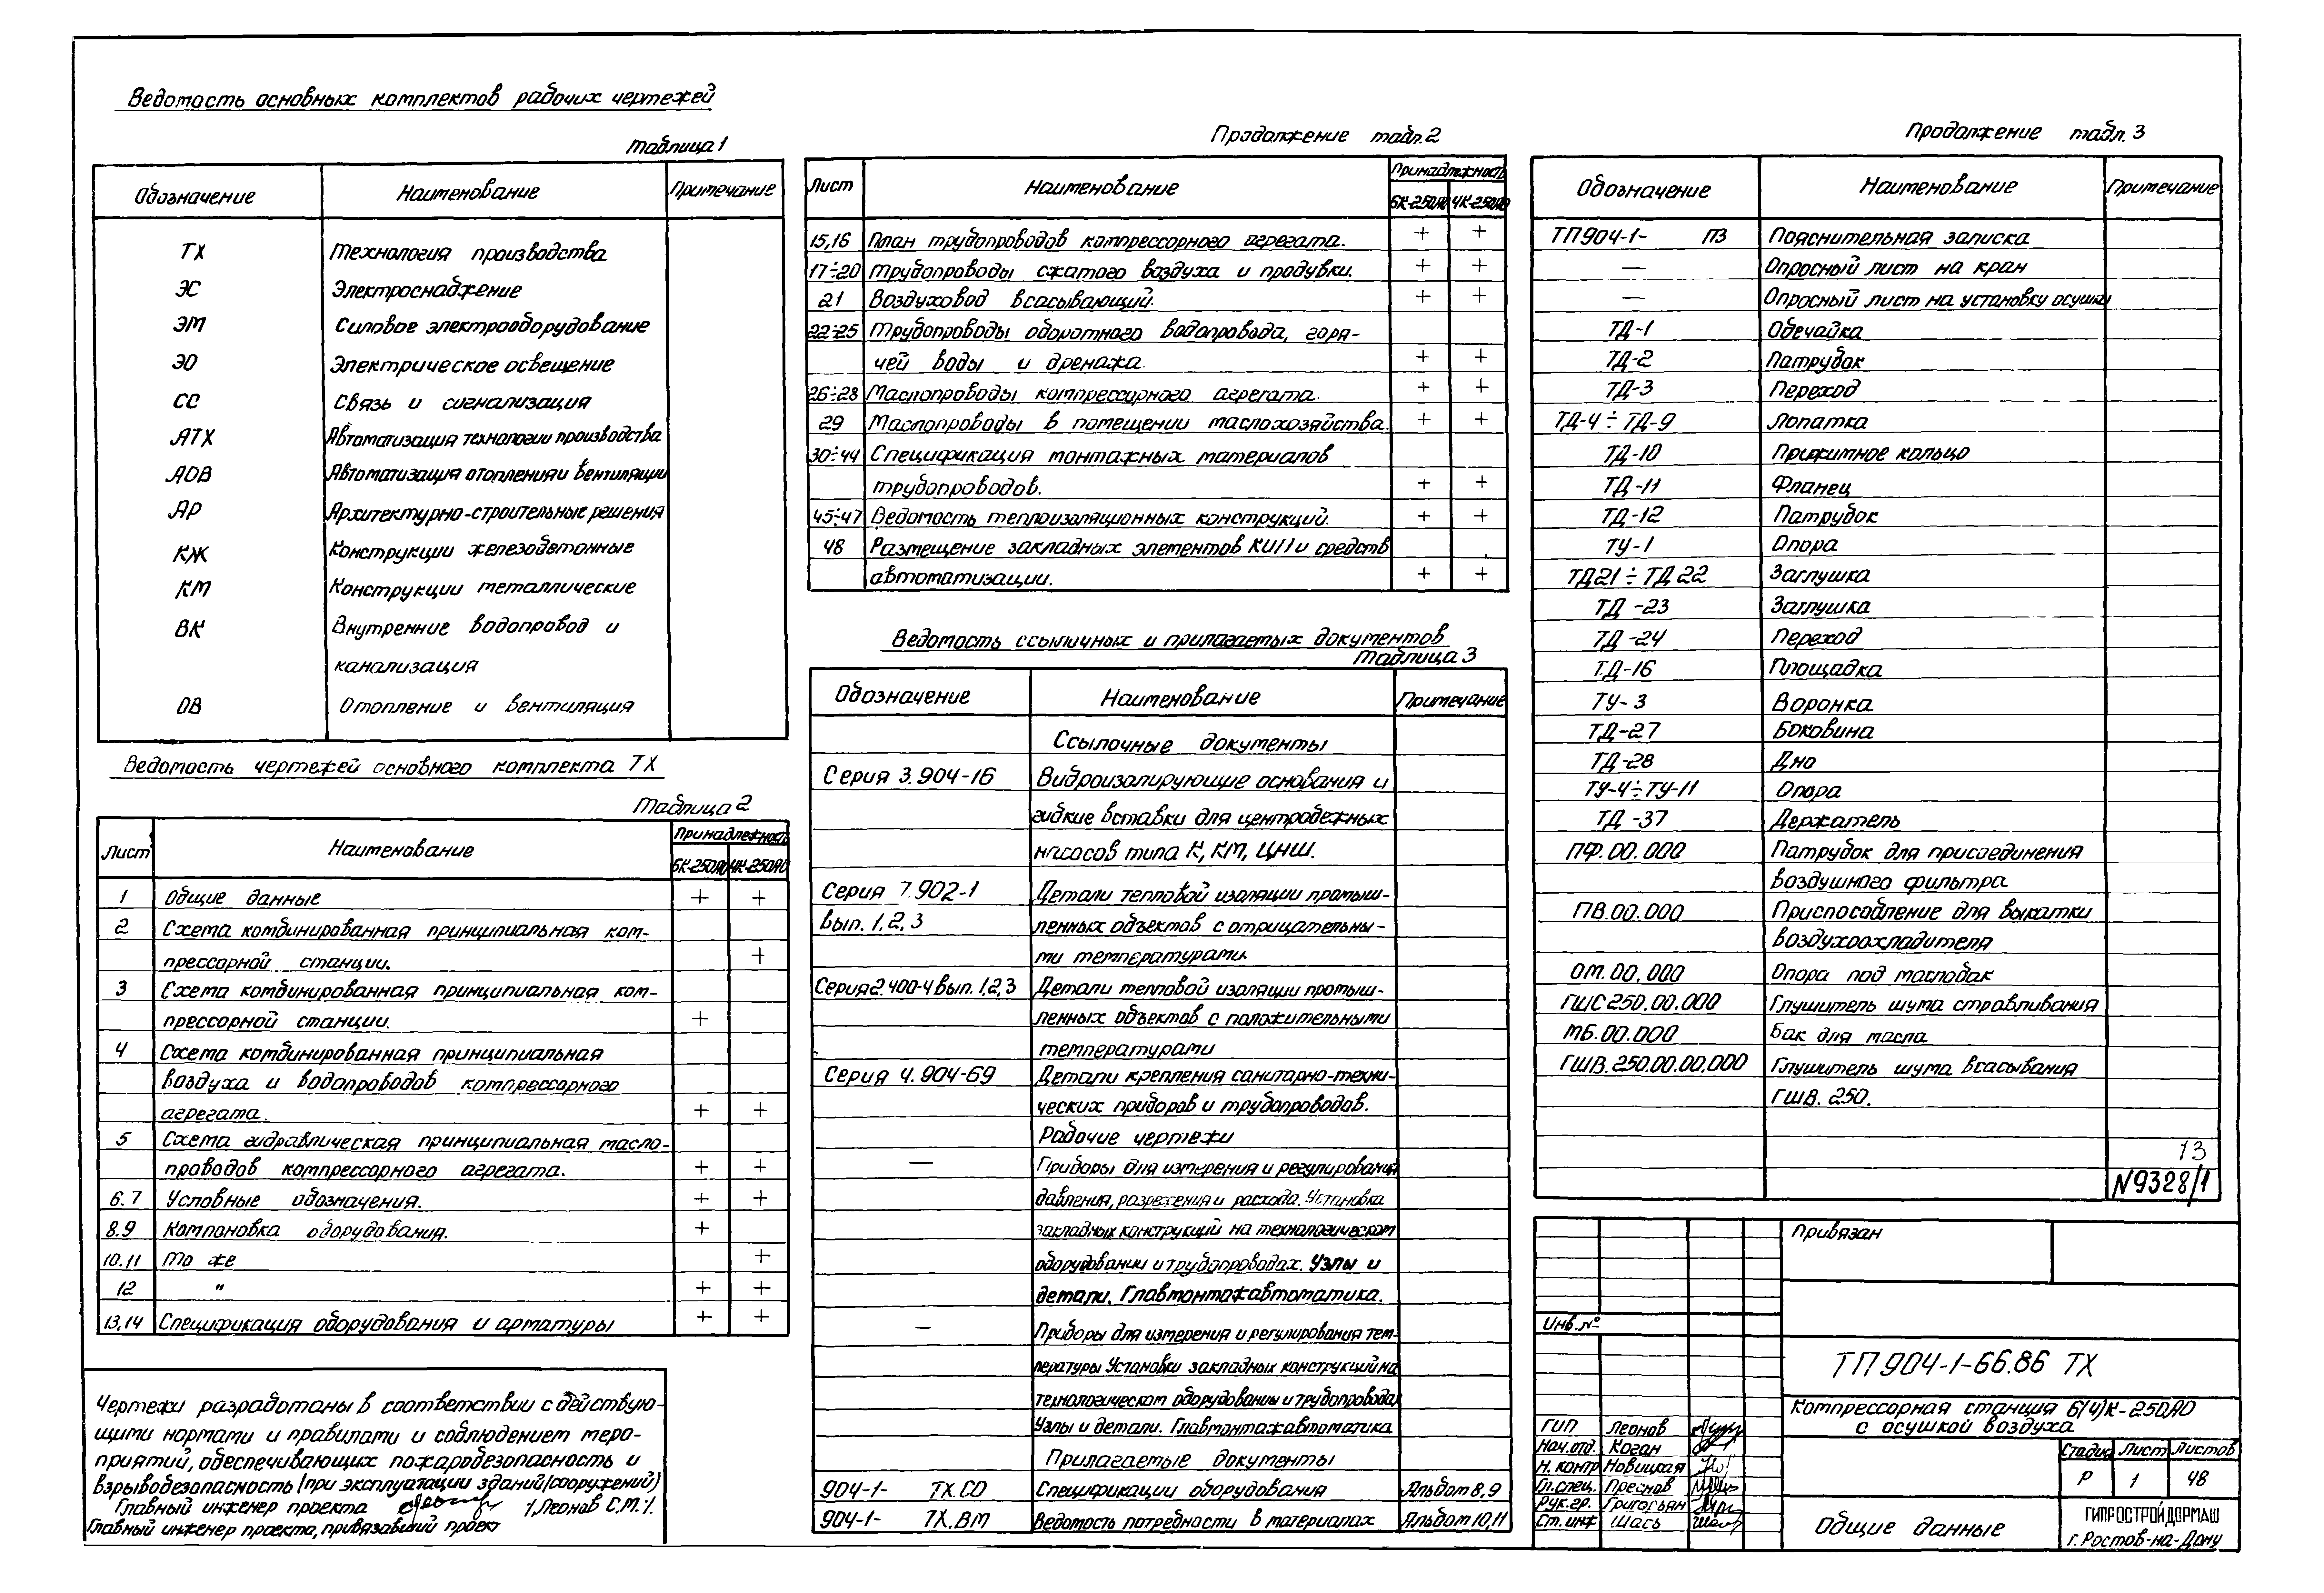 Ведомость основных комплектов рабочих чертежей
Таблица 1
Обозначение Наименование Примечание
ТХ Технология производства
ЭС Электроснабжение
ЭМ Силовое электрооборудование
ЭО Электрическое освещение
СС Связь и сигнализация
АТХ Автоматизация технологии производства
АОВ Автоматизация отопления и вентиляции
АР Архитектурно-строительные решения
КЖ Конструкции железобетонные
КМ Конструкции металлические
ВК Внутренние водопровод и
канализация
ОВ Отопление и вентиляция
Ведомость чертежей основного комплекта ТХ
Таблица 2
Лист Наименование Принадлежность
6К-250АО 4К-250АО
1 Общие данные + +
2 Схема комбинированная принципиальная ком-
прессорной станции. +
3 Схема комбинированная принципиальная ком-
прессорной станции. +
4 Схема комбинированная принципиальная
воздуха и водопроводов компрессорного
агрегата. + +
5 Схема гидравлическая принципиальная масло-
проводов компрессорного агрегата. + +
6.7 Условные обозначения. + +
8.9 Компоновка оборудования. +
10.11 То же +
12 " + +
13,14 Спецификация оборудования и арматуры + +
Чертежи разработаны в соответствии с действую-
щими нормами и правилами и соблюдением меро-
приятий, обеспечивающих пожаробезопасность и
взрывобезопасность (при эксплуатации зданий (сооружений)
Главный инженер проекта /Леонов С.М./
Главный инженер проекта, привязавший проект
Продолжение табл. 2
Лист Наименование Принадлежность
6К-250АО 4К-250АО
15,16 План трубопроводов компрессорного агрегата. + +
17÷20 Трубопроводы сжатого воздуха и продувки. + +
21 Воздуховод всасывающий. + +
22÷25 Трубопроводы оборотного водопровода, горя-
чей воды и дренажа. + +
26÷28 Маслопроводы компрессорного агрегата. + +
29 Маслопроводы в помещении маслохозяйства. + +
30÷44 Спецификация монтажных материалов
трубопроводов. + +
45÷47 Ведомость теплоизоляционных конструкций. + +
48 Размещение закладных элементов КИП и средств
автоматизации. + +
Ведомость ссылочных и прилагаемых документов
Таблица 3
Обозначение Наименование Примечание
Ссылочные документы
Серия 3.904-16 Виброизолирующие основания и
гибкие вставки для центробежных
насосов типа К, КМ, ЦНШ.
Серия 7.902-1 Детали тепловой изоляции промыш-
вып. 1, 2, 3 ленных объектов с отрицательны-
ми температурами.
Серия 2.400-4 вып. 1,2,3 Детали тепловой изоляции промыш-
ленных объектов с положительными
температурами
Серия 4.904-69 Детали крепления санитарно-техни-
ческих приборов и трубопроводов.
Рабочие чертежи
— Приборы для измерения и регулирования
давления, разрежения и расхода. Установка
закладных конструкций на технологическом
оборудовании и трубопроводах. Узлы и
детали. Главмонтажавтоматика.
— Приборы для измерения и регулирования тем-
пературы Установки закладных конструкций на
технологическом оборудовании и трубопроводах
Узлы и детали. Главмонтажавтоматика
Прилагаемые документы
904-1- ТХ.СО Спецификации оборудования Альбом 8,9
904-1- ТХ.ВМ Ведомость потребности в материалах Альбом 10,11
Продолжение табл. 3
Обозначение Наименование Примечание
ТП904-1- ПЗ Пояснительная записка
— Опросный лист на кран
— Опросный лист на установку осушки
ТД-1 Обечайка
ТД-2 Патрубок
ТД-3 Переход
ТД-4÷ТД-9 Лопатка
ТД-10 Прижимное кольцо
ТД-11 Фланец
ТД-12 Патрубок
ТУ-1 Опора
ТД21÷ТД22 Заглушка
ТД-23 Заглушка
ТД-24 Переход
ТД-16 Площадка
ТУ-3 Воронка
ТД-27 Боковина
ТД-28 Дно
ТУ-4÷ТУ-11 Опора
ТД-37 Держатель
ПФ.00.000 Патрубок для присоединения
воздушного фильтра
ПВ.00.000 Приспособление для выкатки
воздухоохладителя
ОМ.00.000 Опора под маслобак
ГШС 250.00.000 Глушитель шума стравливания
МБ.00.000 Бак для масла
ГШВ.250.00.00.000 Глушитель шума всасывания
ГШВ. 250.
13
N9328/1
Привязан
Инв.№
ТП904-1-66.86 ТХ
Компрессорная станция 6(4)К-250АО
с осушкой воздуха
Стадия Лист Листов
Р 1 48
ГИП Леонов
Нач.отд. Коган
Н.контр Новицкая
Гл.спец. Преснов
Рук.гр. Григорьян
Ст.инж Шась
Общие данные
ГИПРОСТРОЙДОРМАШ
г. Ростов-на-Дону